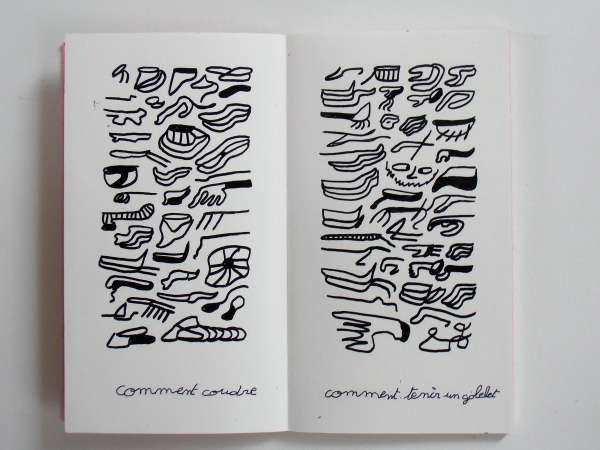 comment coudre
comment tenir un gobelet